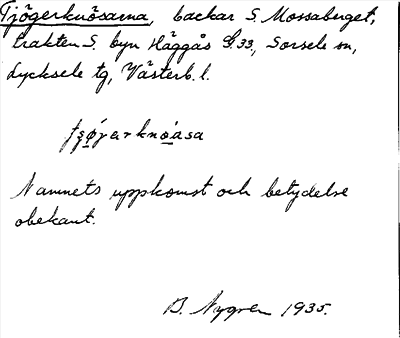 Tjögerknösarna, backar S. Mossaberget,
trakten S. byn Häggås G.33, Sorsele sn,
Lycksele tg, Västerb. l.
Namnets uppkomst och betydelse
obekant.
B. Nygren 1935.